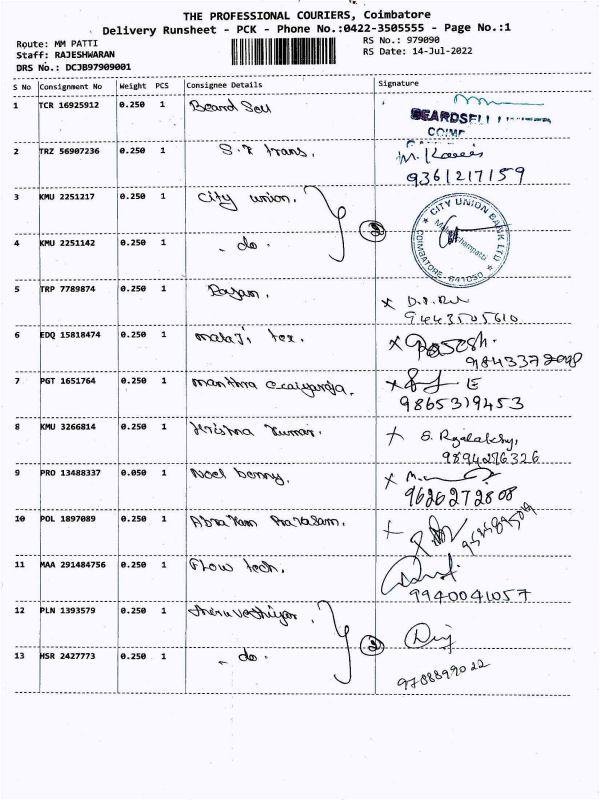 THE PROFESSIONAL COURIERS, Coimbatore
Delivery Runsheet - PCK - Phone No.:0422-3505555 - Page No.:1
Route: MM PATTI
Staff: RAJESHWARAN
DRS No.: DCJB97909001
RS No.: 979090
RS Date: 14-Jul-2022
S No Consignment No Weight PCS Consignee Details Signature
1 TCR 16925912 0.250 1 Beard Sell
BEARDSELL
2 TRZ 56907236 0.250 1 S.R trans.
9361217159
3 KMU 2251217 0.250 1 City union.
2
CITY UNION BANK LTD
COIMBATORE
4 KMU 2251142 0.250 1 - do.
5 TRP 7789874 0.250 1
9443505610
6 EDQ 15818474 0.250 1 malaji tex.
7 PGT 1651764 0.250 1 manthra
9865319453
8 KMU 3266814 0.250 1 Krishna Kumar.
9894276326
9 PRO 13488337 0.050 1 Noel benny.
9626272808
10 POL 1897089 0.250 1
11 MAA 291484756 0.250 1 Flow tech.
9940041057
12 PLN 1393579 0.250 1
2
13 HSR 2427773 0.250 1 - do.
9788899022